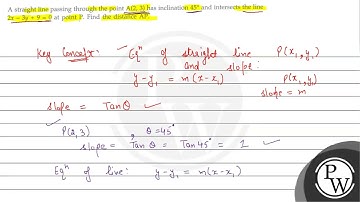 A straight line passing through the point A(2, 3) has inclination 45° and intersects the line
2x − 3y + 9 = 0 at point P. Find the distance AP.
Key Concept: - Eqⁿ of straight line P(x₁, y₁)
and slope:
y − y₁ = m(x − x₁) P(x₁, y₁)
slope = m
slope = Tanθ
P(2,3) θ = 45°
slope = Tanθ = Tan45° = 1
Eqⁿ of line: y − y₁ = m(x − x₁)
PW